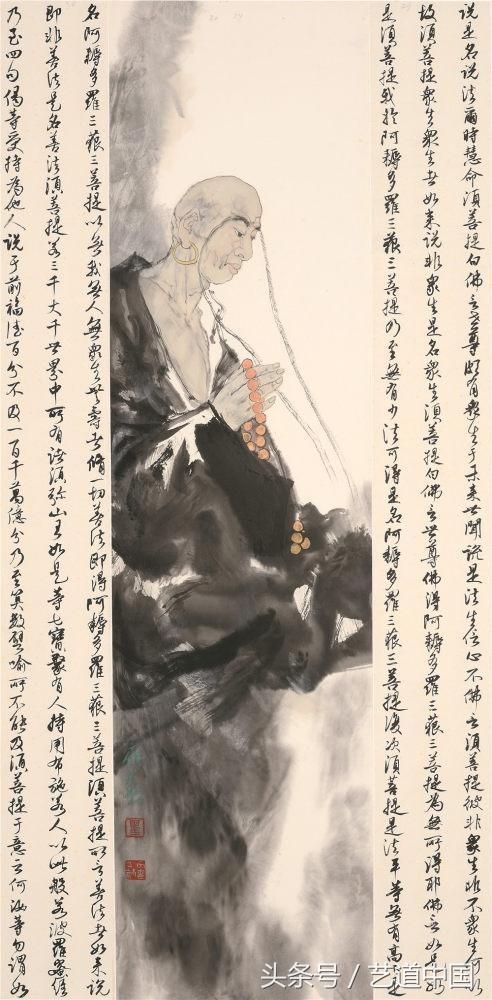 說是名說法爾時慧命須菩提白佛言世尊頗有衆生于未來世聞說是法生信心不佛言須菩提彼非衆生非不衆生何以
故須菩提衆生衆生者如来說非衆生是名衆生須菩提白佛言世尊佛得阿耨多羅三藐三菩提為無所得耶佛言如是如
是須菩提我於阿耨多羅三藐三菩提乃至無有少法可得是名阿耨多羅三藐三菩提復次須菩提是法平等無有高下是
名阿耨多羅三藐三菩提以無我無人無衆生無壽者脩一切善法即得阿耨多羅三藐三菩提須菩提所言善法者如来說
即非善法是名善法須菩提若三千大千世界中所有諸須弥山王如是等七寶聚有人持用布施若人以此般若波羅蜜經
乃至四句偈等受持為他人說于前福德百分不及一百千萬億分乃至算數譬喻所不能及須菩提于意云何汝等勿謂如
头条号 / 艺道中国